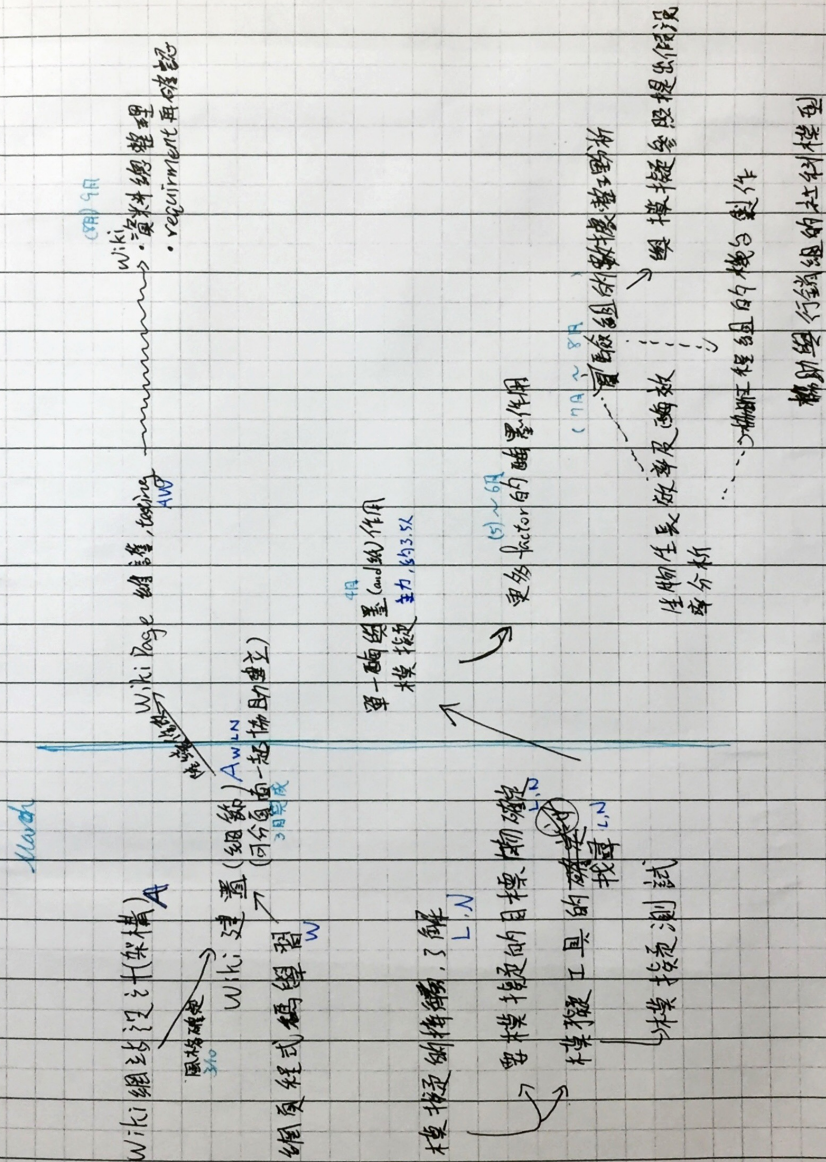 March
Wiki網站設計(架構) A
風格確定
3/10
Wiki 建置(細節) AWLN
(可分頁面一起協助建立)
3月完成
網頁程式碼學習
W
Wiki Page 維護, testing
AW
(8月) 9月
Wiki
・資料總整理
・requirment 再確認
模擬的
了解
L,N
要模擬的目標
確定
L,N
模擬工具的
找尋 L,N
模擬測試
4月
單一酶
(and
)作用
模擬 主力,約3.5人
(5)~6月
更多factor的酶
作用
(7月~8月)
實驗組的數據整理與分析
與模擬參照提出假說
生物生長效率及酶效
率分析
協助工程組的機台製作
協助與行銷組的社科模型